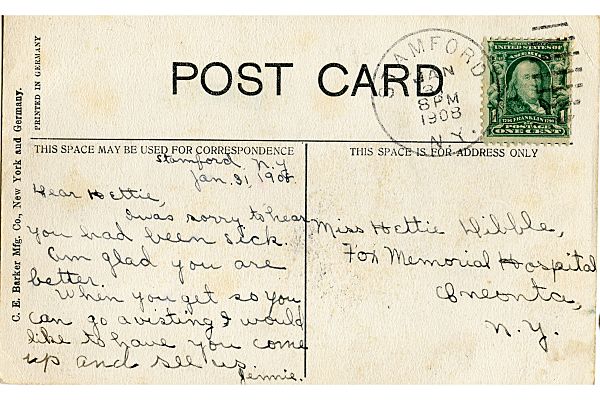 POST CARD
STAMFORD
JAN
8PM
1908
N.Y.
UNITED STATES OF
AMERICA
FRANKLIN
POSTAGE
ONE CENT
C. E. Barker Mfg. Co., New York and Germany.
PRINTED IN GERMANY
THIS SPACE MAY BE USED FOR CORRESPONDENCE
Stamford N.Y.
Jan. 31, 1908.
Dear Hettie,
I was sorry to hear
you had been sick.
Am glad you are
better.
When you get so you
can go a visting I would
like to have you come
up and see us.
Jennie.
THIS SPACE IS FOR ADDRESS ONLY
Miss Hettie Dibble,
Fox Memorial Hospital
Oneonta,
N.Y.